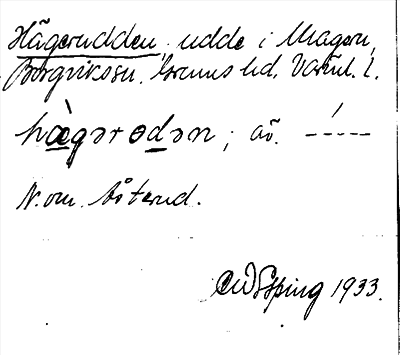 Hägerudden, udde i Magern,
Borgvikssn. Grums hd. Värml. l.
hæ̀gərodən; av. –́–––
N. om Åsterud.
CWEsping 1933.